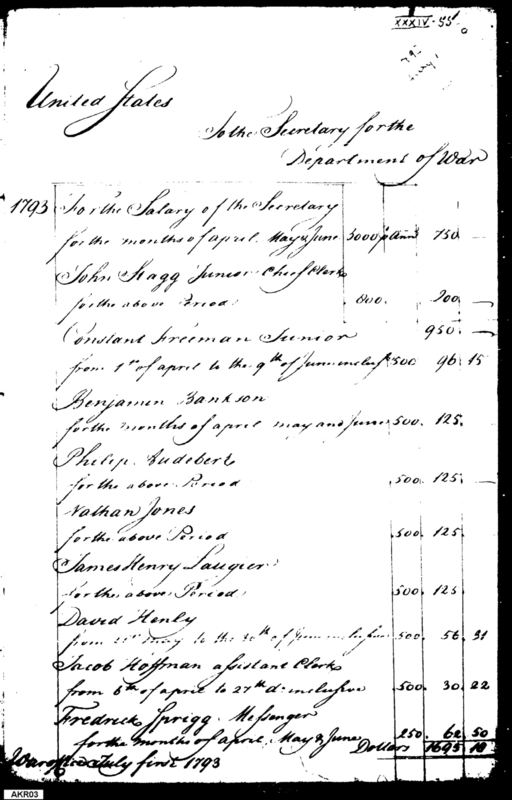 XXXIV-55
United States
To the Secretary for the
Department of War
1793 For the Salary of the Secretary
for the months of april May & June 3000 p Ann 750
John Stagg Junior Chief Clerk
for the above Period 800. 200. —
950. —
Constant Freeman Junior
from 1st of april to the 9th of June inclusf 500 96 15
Benjamin Bankson
for the months of april may and June 500. 125.
Philip Audebert
for the above Period 500. 125. —
Nathan Jones
for the above Period 500. 125.
James Henry Laugier
for the above Period 500. 125
David Henly
from may to the of June inclusive 500. 56. 31
Jacob Hoffman assistant Clerk
from 6th of april to 27th do inclusive 500. 30. 22
Fredrick Sprigg Messenger
for the months of april, May & June 250. 62. 50
Dollars 1695 18
War office July first 1793
AKR03